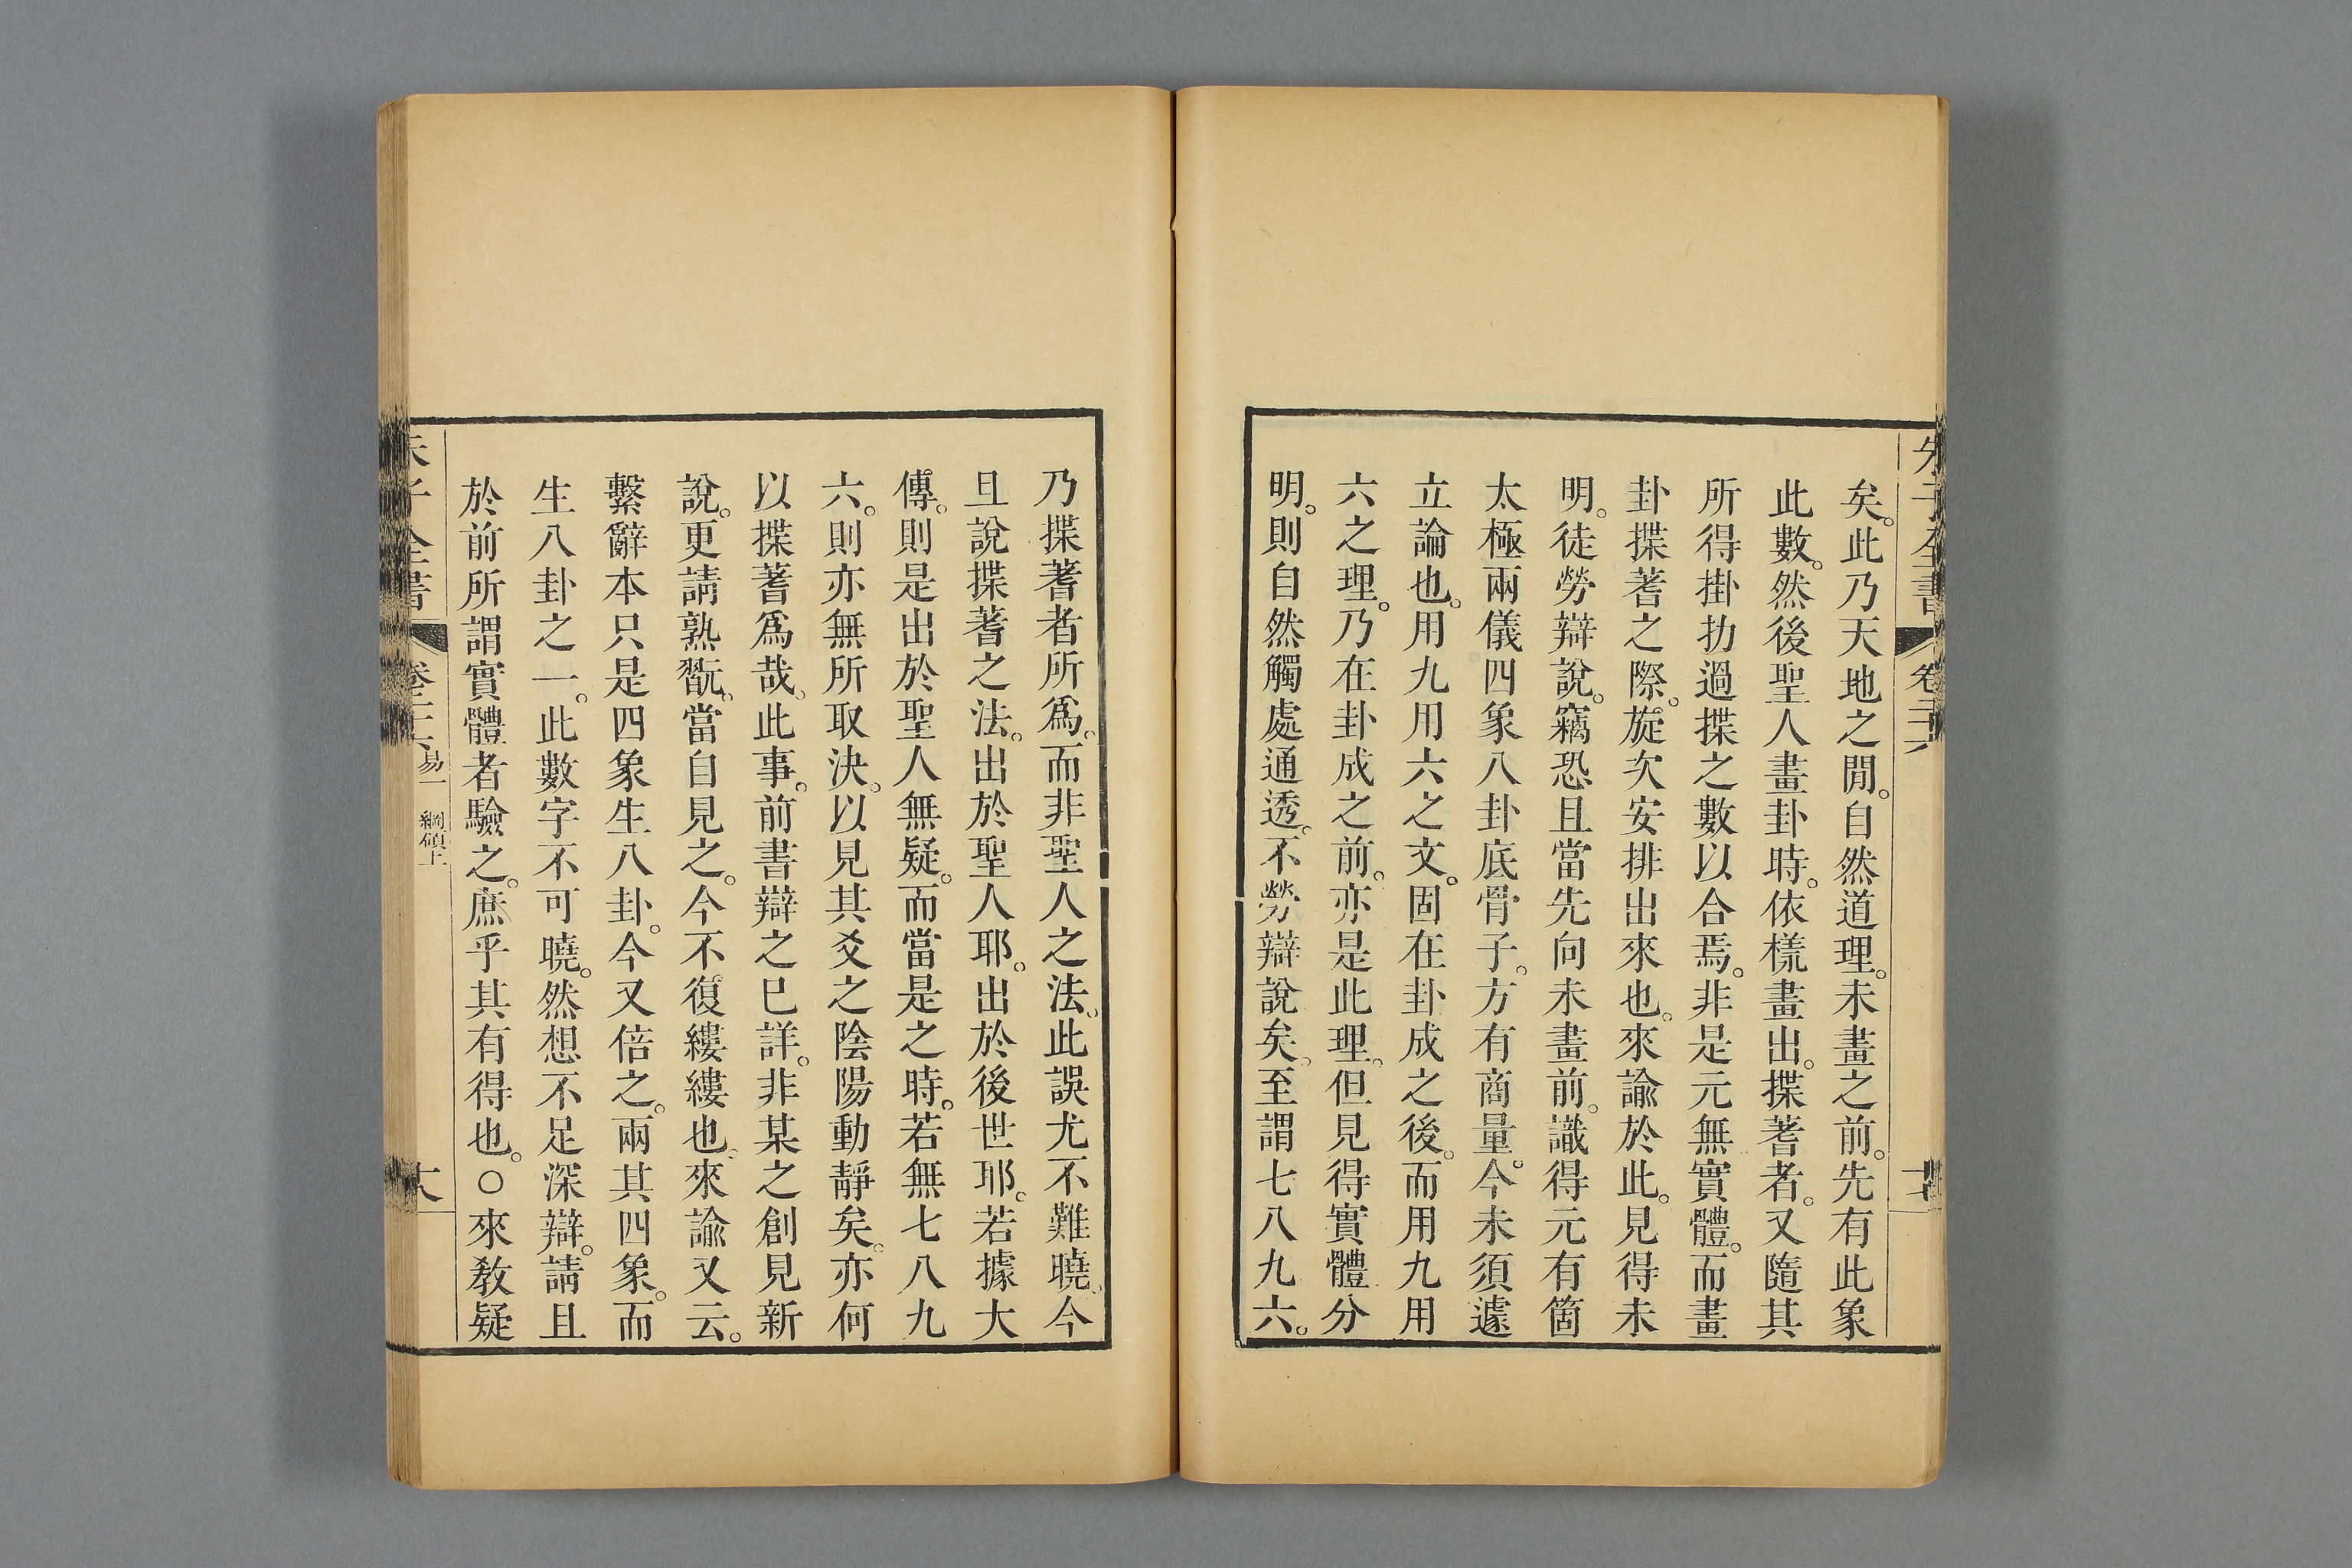 朱子全書 卷二十六
矣。此乃天地之閒。自然道理。未畫之前。先有此象
此數。然後聖人畫卦時。依樣畫出。揲蓍者。又隨其
所得掛扐過揲之數以合焉。非是元無實體。而畫
卦揲蓍之際。旋次安排出來也。來諭於此。見得未
明。徒勞辯說。竊恐且當先向未畫前。識得元有箇
太極兩儀四象八卦底骨子。方有商量。今未須遽
立論也。用九用六之文。固在卦成之後。而用九用
六之理。乃在卦成之前。亦是此理。但見得實體分
明。則自然觸處通透。不勞辯說矣。至謂七八九六。
乃揲蓍者所爲。而非聖人之法。此誤尤不難曉。今
且說揲蓍之法。出於聖人耶。出於後世耶。若據大
傳。則是出於聖人無疑。而當是之時。若無七八九
六。則亦無所取決。以見其爻之陰陽動靜矣。亦何
以揲蓍爲哉。此事。前書辯之已詳。非某之創見新
說。更請熟翫。當自見之。今不復縷縷也。來諭又云。
繫辭本只是四象生八卦。今又倍之。兩其四象。而
生八卦之一。此數字不可曉。然想不足深辯。請且
於前所謂實體者驗之。庶乎其有得也。○來敎疑
朱子全書 易一 綱領上